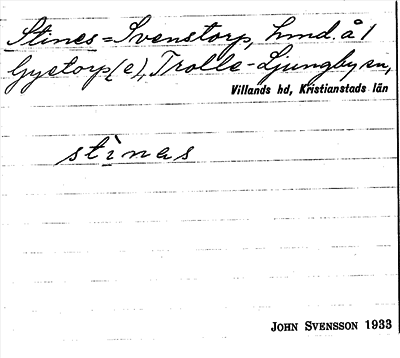 Stines = Svenstorp, hmd. å 1
Gystorp (e), Trolle-Ljungby sn,
Villands hd, Kristianstads län
stìnas
JOHN SVENSSON 1933